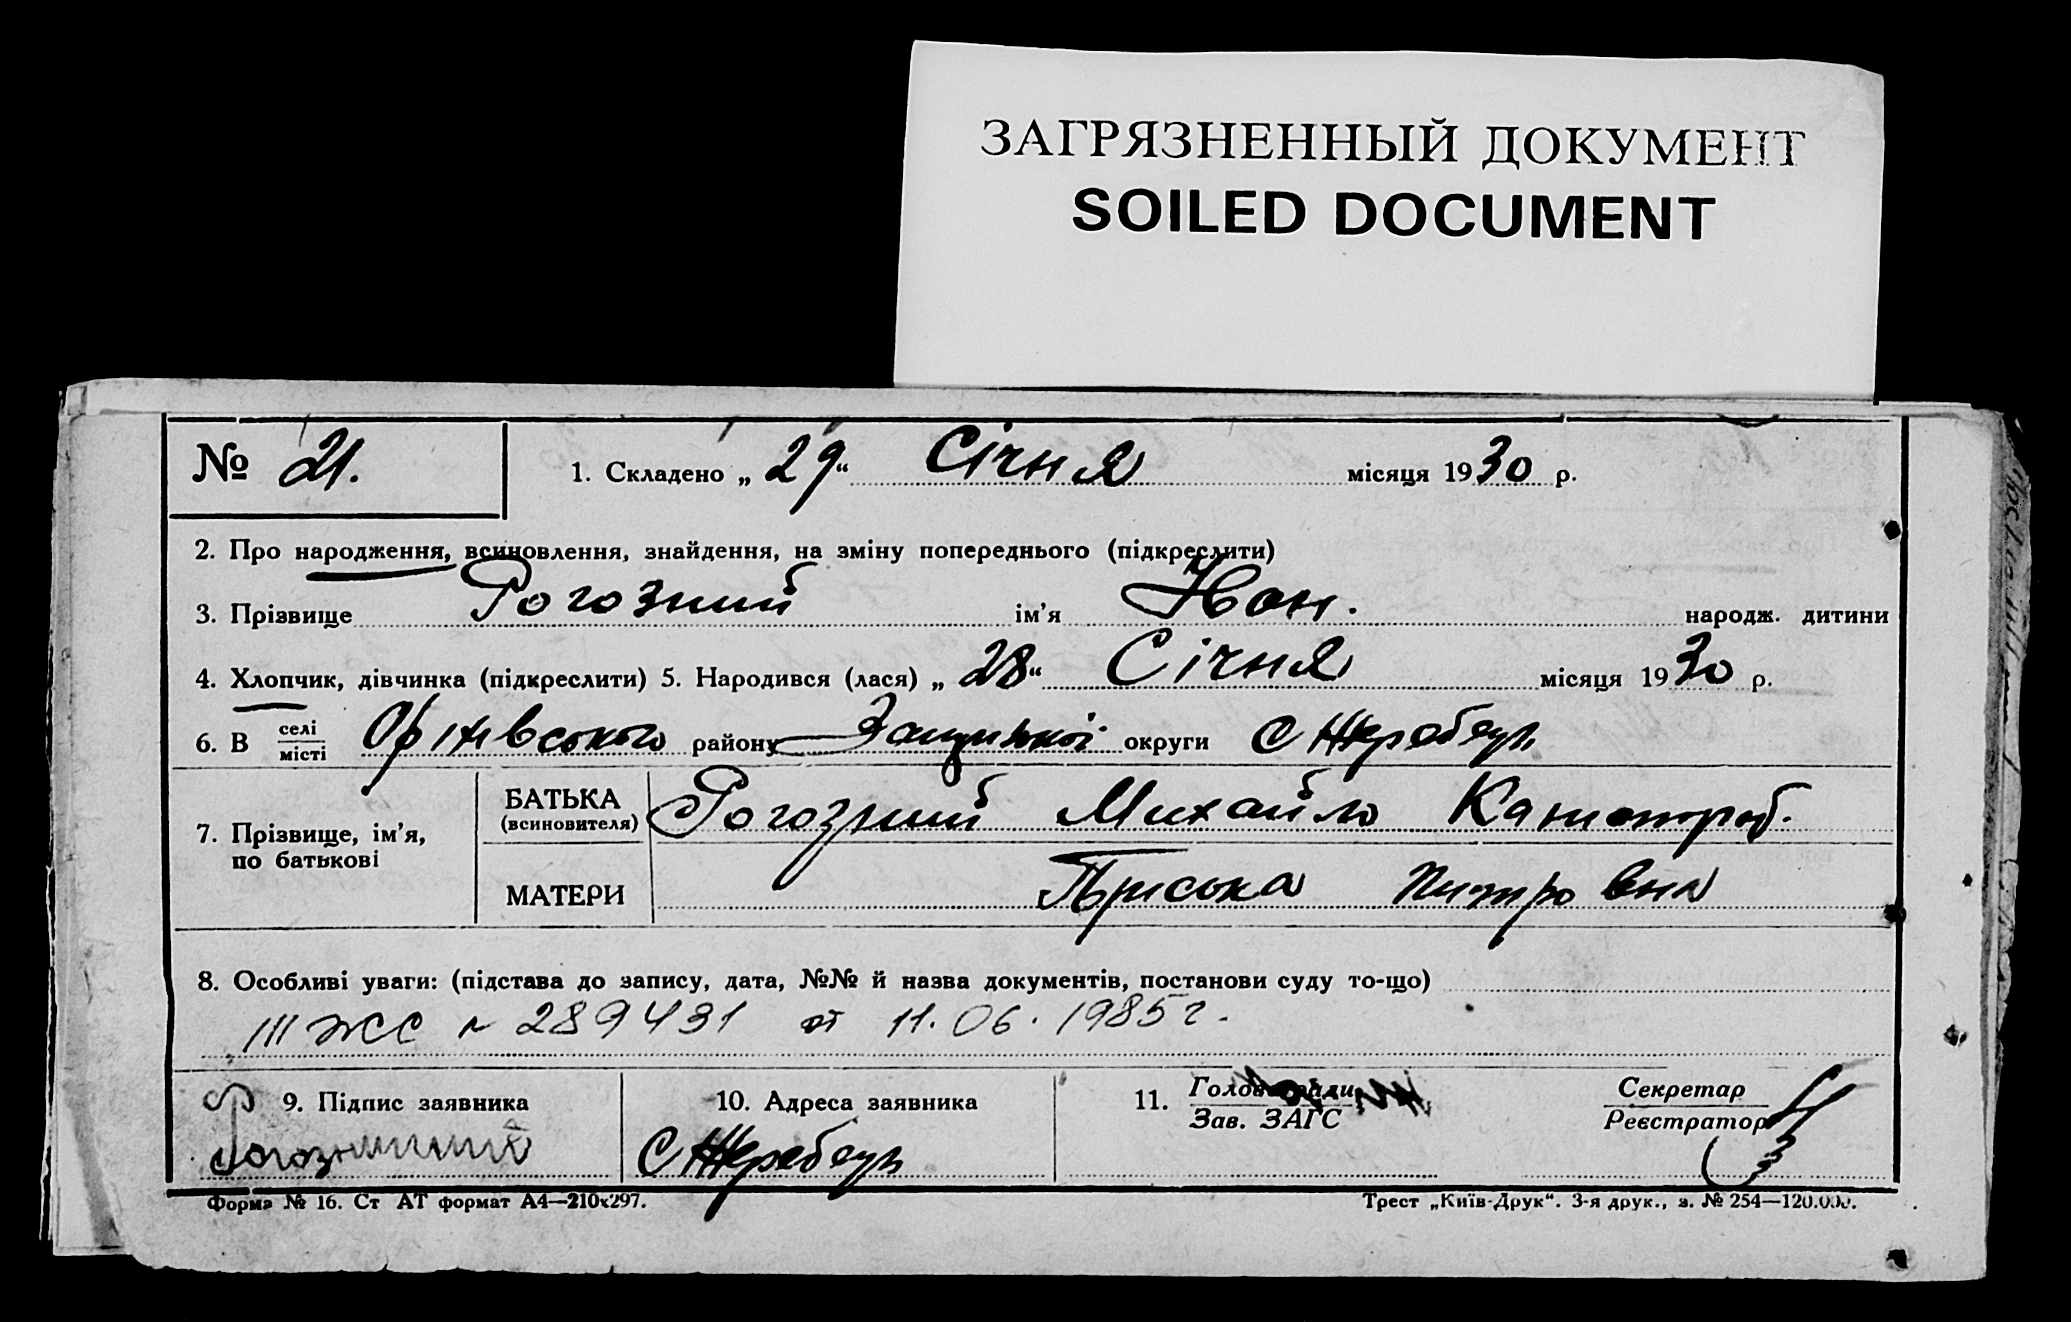 ЗАГРЯЗНЕННЫЙ ДОКУМЕНТ
SOILED DOCUMENT
№ 21.
1. Складено „ 29 “ Січня місяця 1930 р.
2. Про народження, всиновлення, знайдення, на зміну попереднього (підкреслити)
3. Прізвище Рогозний ім'я Іван. народж. дитини
4. Хлопчик, дівчинка (підкреслити) 5. Народився (лася) „ 28 “ Січня місяця 1930 р.
6. В селі місті Оріхівського району округи С Жеребець
7. Прізвище, ім'я, по батькові
БАТЬКА (всиновителя) Рогозний Михайло
МАТЕРИ Пріська
8. Особливі уваги: (підстава до запису, дата, №№ й назва документів, постанови суду то-що)
III ЖС № 289431 от 11.06.1985г.
9. Підпис заявника
Рогозний
10. Адреса заявника
С Жеребець
11. Голова ради
Зав. ЗАГС
Секретар
Реєстратор
Форма № 16. Ст АТ формат А4—210х297.
Трест „Київ-Друк“. 3-я друк., з. № 254—120.000.